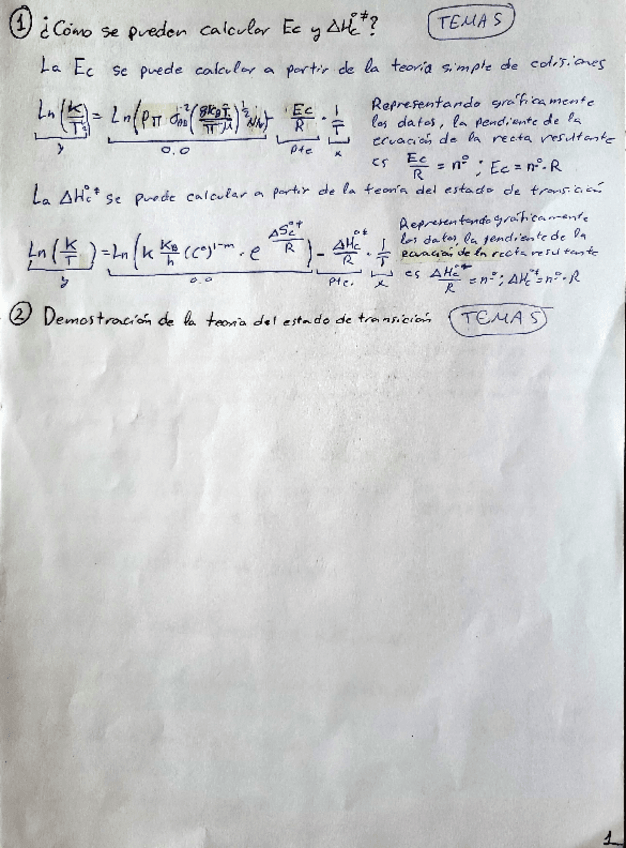 ① ¿Cómo se pueden calcular Ec y ΔHc°‡? TEMA 5
La Ec se puede calcular a partir de la teoría simple de colisiones
Ln(K/T^½) = Ln(pπ σ_AB² (8K_B/πμ)^½ N_A) - Ec/R · 1/T
y o.o pte x
Representando gráficamente
los datos, la pendiente de la
ecuación de la recta resultante
es Ec/R = nº ; Ec = nº · R
La ΔHc°‡ se puede calcular a partir de la teoría del estado de transición
Ln(K/T) = Ln(K K_B/h (c°)^1-m · e^ΔSc°‡/R) - ΔHc°‡/R · 1/T
y o.o pte. x
Representando gráficamente
los datos, la pendiente de la
ecuación de la recta resultante
es ΔHc°‡/R = nº ; ΔHc°‡ = nº · R
② Demostración de la teoría del estado de transición TEMA 5
1